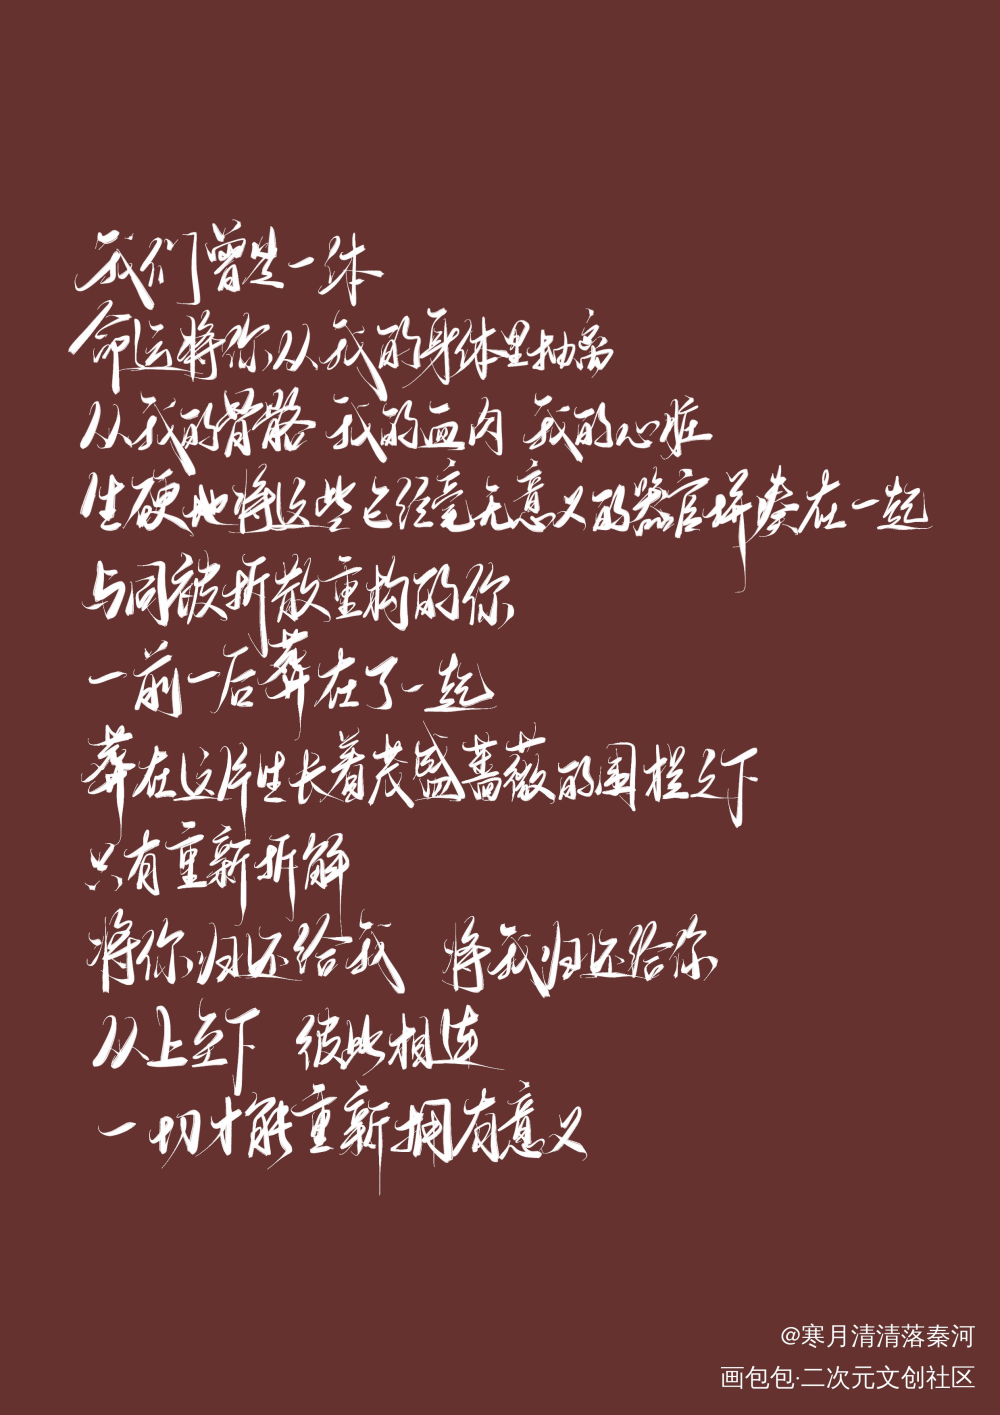 我们曾是一体
命运将你从我的身体里抽离
从我的骨骼 我的血肉 我的心脏
生硬地将这些已经毫无意义的器官拼凑在一起
与同被拆散重构的你
一前一后葬在了一起
葬在这片生长着茂盛蔷薇的围栏之下
只有重新拆解
将你归还给我 将我归还给你
从上至下 彼此相连
一切才能重新拥有意义
@寒月清清落秦河
画包包·二次元文创社区